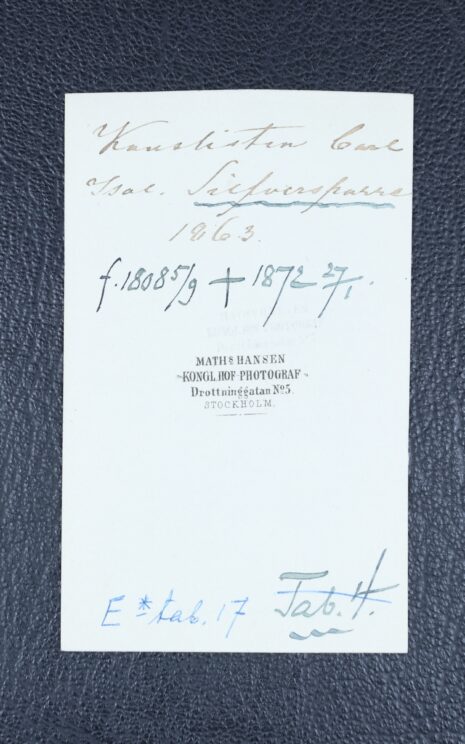 Kanslisten Carl
Isac. Silfversparre
1863.
f. 1808 5/9 + 1872 27/1.
MATHS HANSEN
KONGL. HOF-PHOTOGRAF
Drottninggatan No 5.
STOCKHOLM.
E * tab. 17 Tab. H.